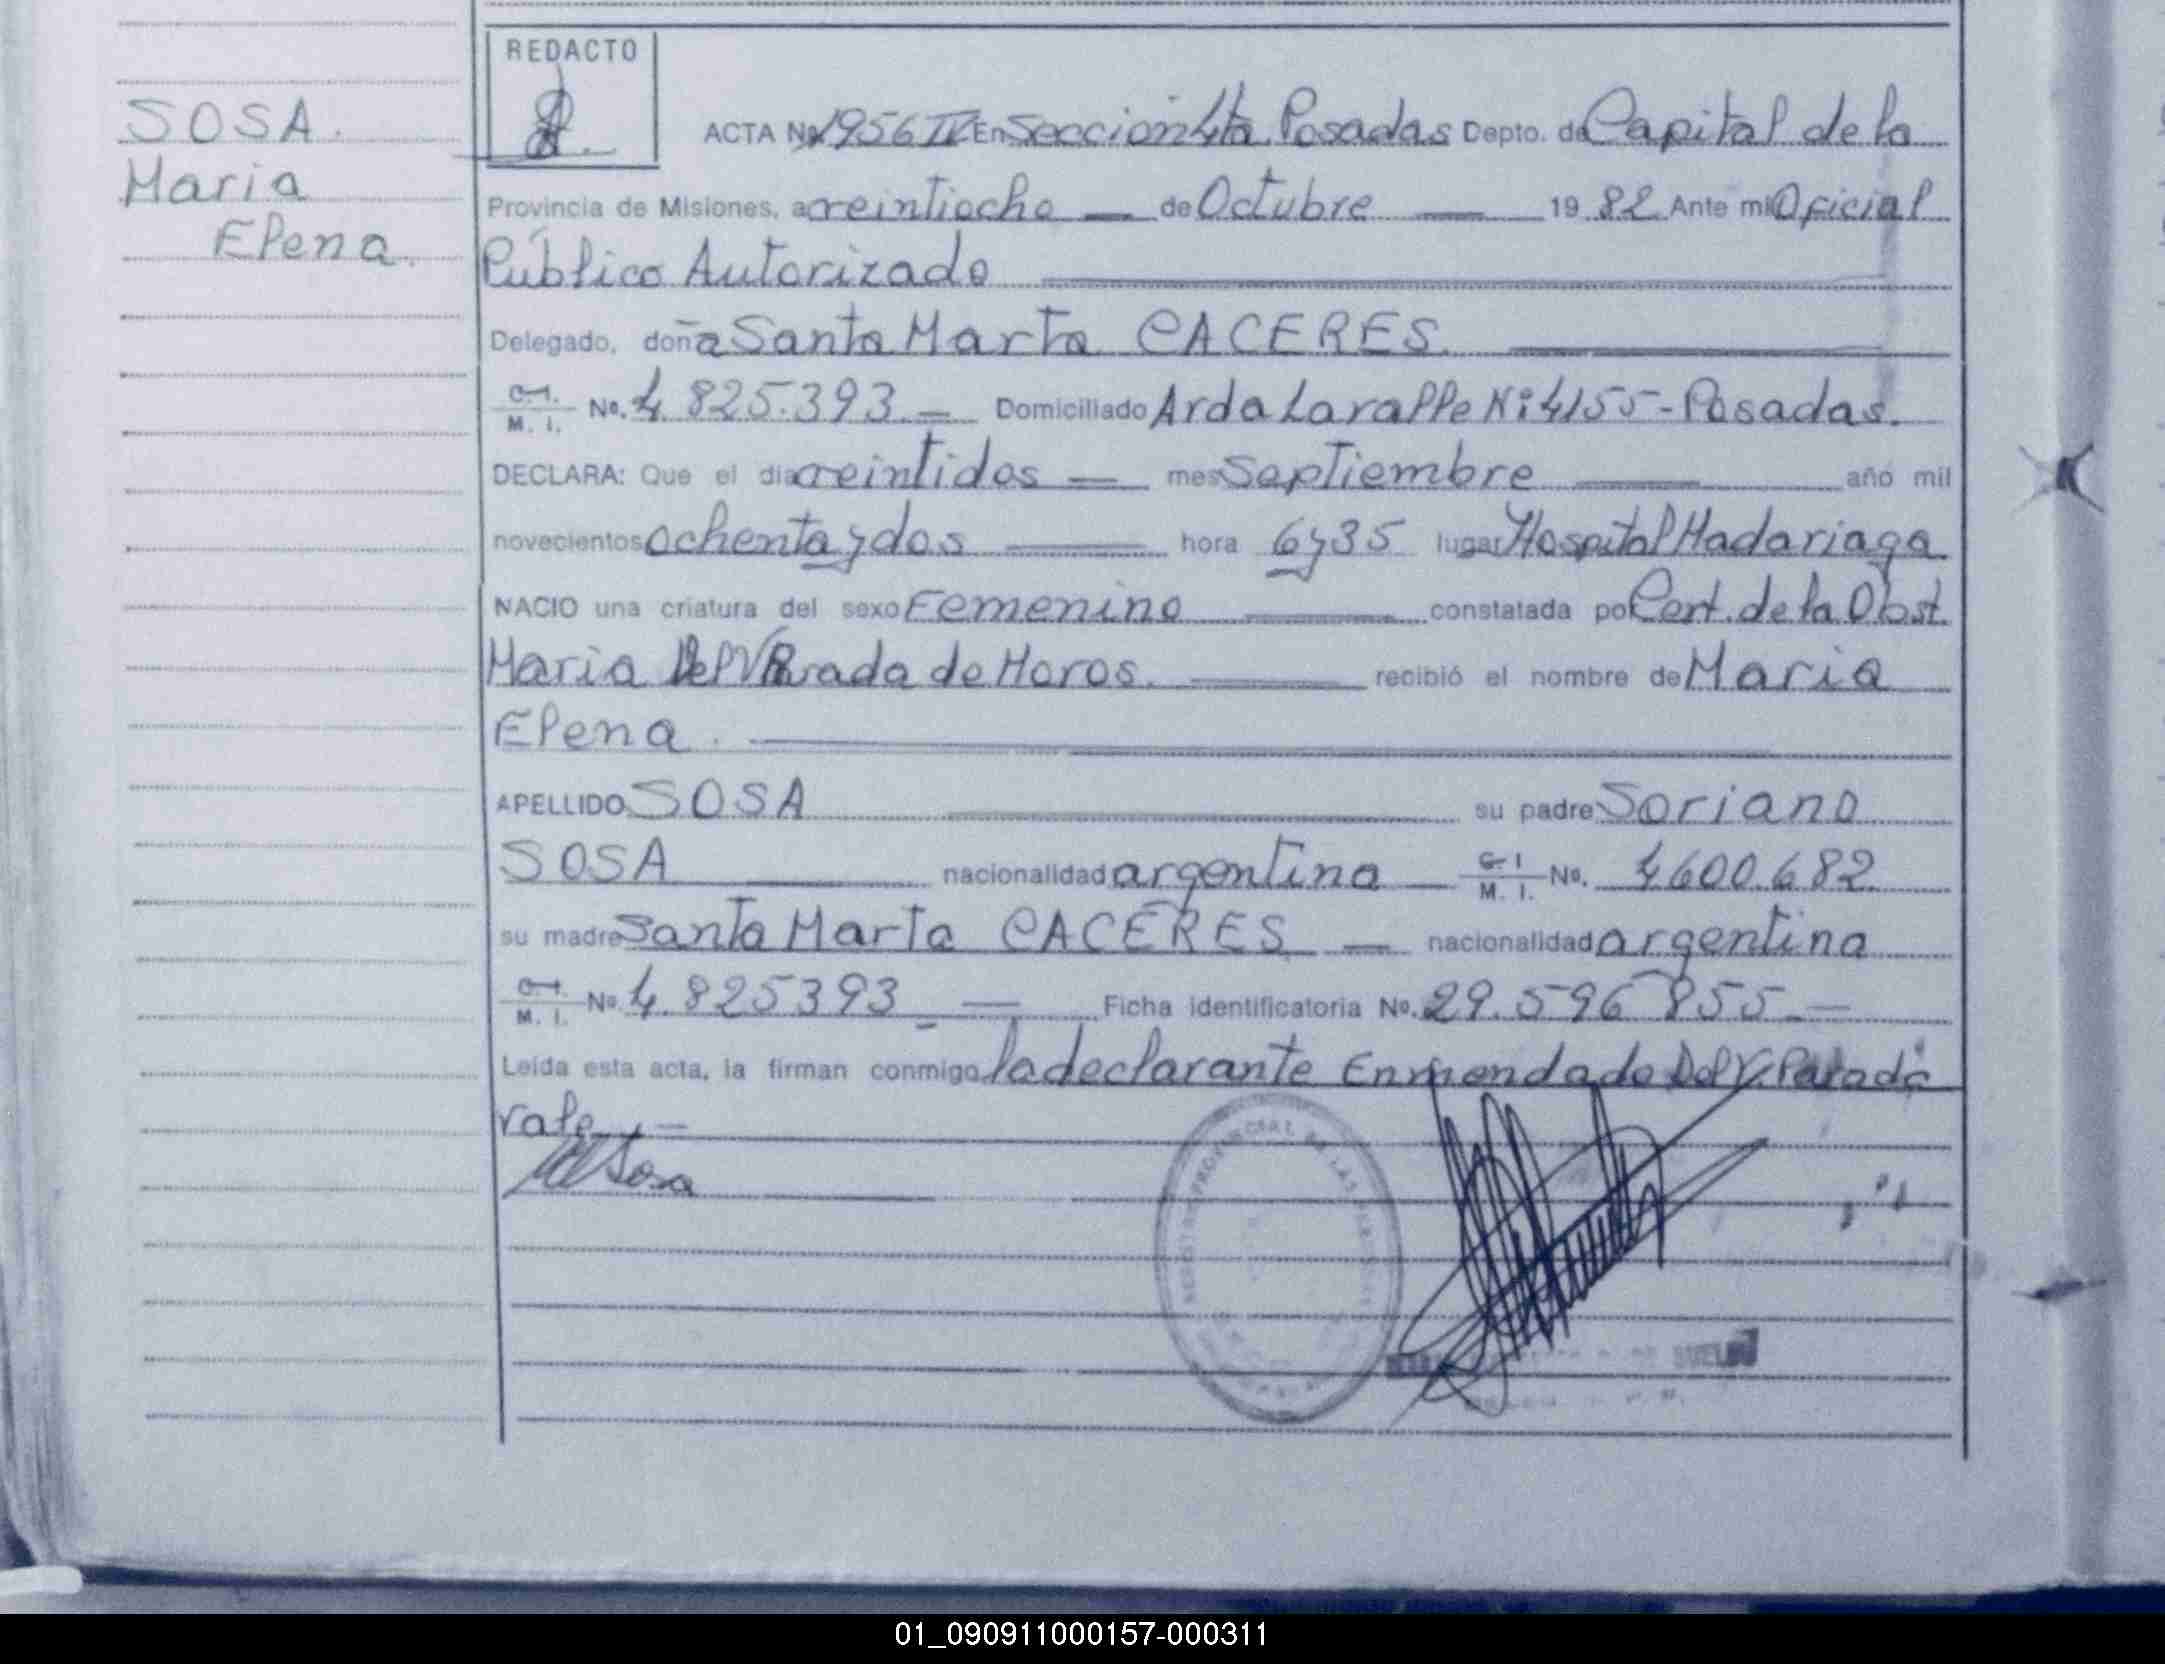 SOSA.
Maria
Elena.
REDACTO
ACTA Nº 1956 IV En Seccion 4ta Posadas Depto. de Capital de la
Provincia de Misiones, a veintiocho — de Octubre — 19 82 Ante mi Oficial
Público Autorizado
Delegado, doña Santa Marta CACERES.
C.I. M. I. No. 4.825.393.— Domiciliado Avda Lavalle Nº 4155-Posadas.
DECLARA: Que el dia veintidos — mes Septiembre — año mil
novecientos ochenta y dos — hora 6y35 lugar Hospital Madariaga
NACIO una criatura del sexo Femenino — constatada por Cert. de la Obst.
Maria Del V. Parada de Moros. — recibió el nombre de Maria
Elena.
APELLIDO SOSA — su padre Soriano
SOSA — nacionalidad argentina — C.I. M. I. No. 4600.682
su madre Santa Marta CACERES — nacionalidad argentina
C.I. M. I. No. 4.825393 — Ficha identificatoria No. 29.596855.—
Leída esta acta, la firman conmigo la declarante Enmendado Del V. Parada
vale.—
Sosa
REGISTRO PROVINCIAL DE LAS
01_090911000157-000311